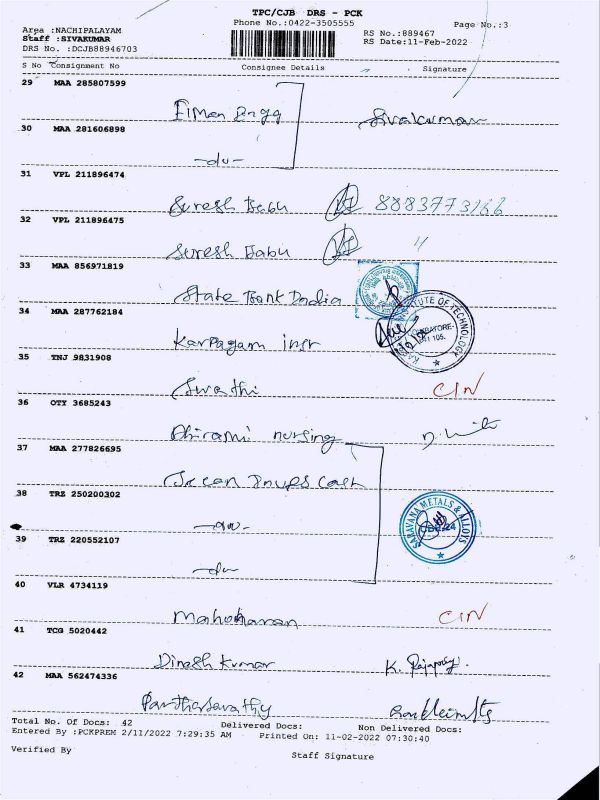 TPC/CJB DRS - PCK
Phone No.:0422-3505555
Page No.:3
Area :NACHIPALAYAM
Staff :SIVAKUMAR
DRS No. :DCJB88946703
RS No.:889467
RS Date:11-Feb-2022
S No Consignment No Consignee Details Signature
29 MAA 285807599
Sivakumar
30 MAA 281606898
-do-
31 VPL 211896474
Suresh Babu 8883773166
32 VPL 211896475
Suresh Babu "
33 MAA 856971819
State Bank India
34 MAA 287762184
Karpagam instr
INSTITUTE OF TECHNOLOGY
COIMBATORE-
641 105.
35 TNJ 9831908
Swathi CIN
36 OTY 3685243
Abirami nursing
37 MAA 277826695
38 TRZ 250200302
-do-
SARAVANA METALS & ALLOYS
39 TRZ 220552107
-do-
40 VLR 4734119
Manoharan CIN
41 TCG 5020442
Dinesh Kumar
42 MAA 562474336
Parthasarathy
Total No. Of Docs: 42 Delivered Docs: Non Delivered Docs:
Entered By :PCKPREM 2/11/2022 7:29:35 AM Printed On: 11-02-2022 07:30:40
Verified By Staff Signature